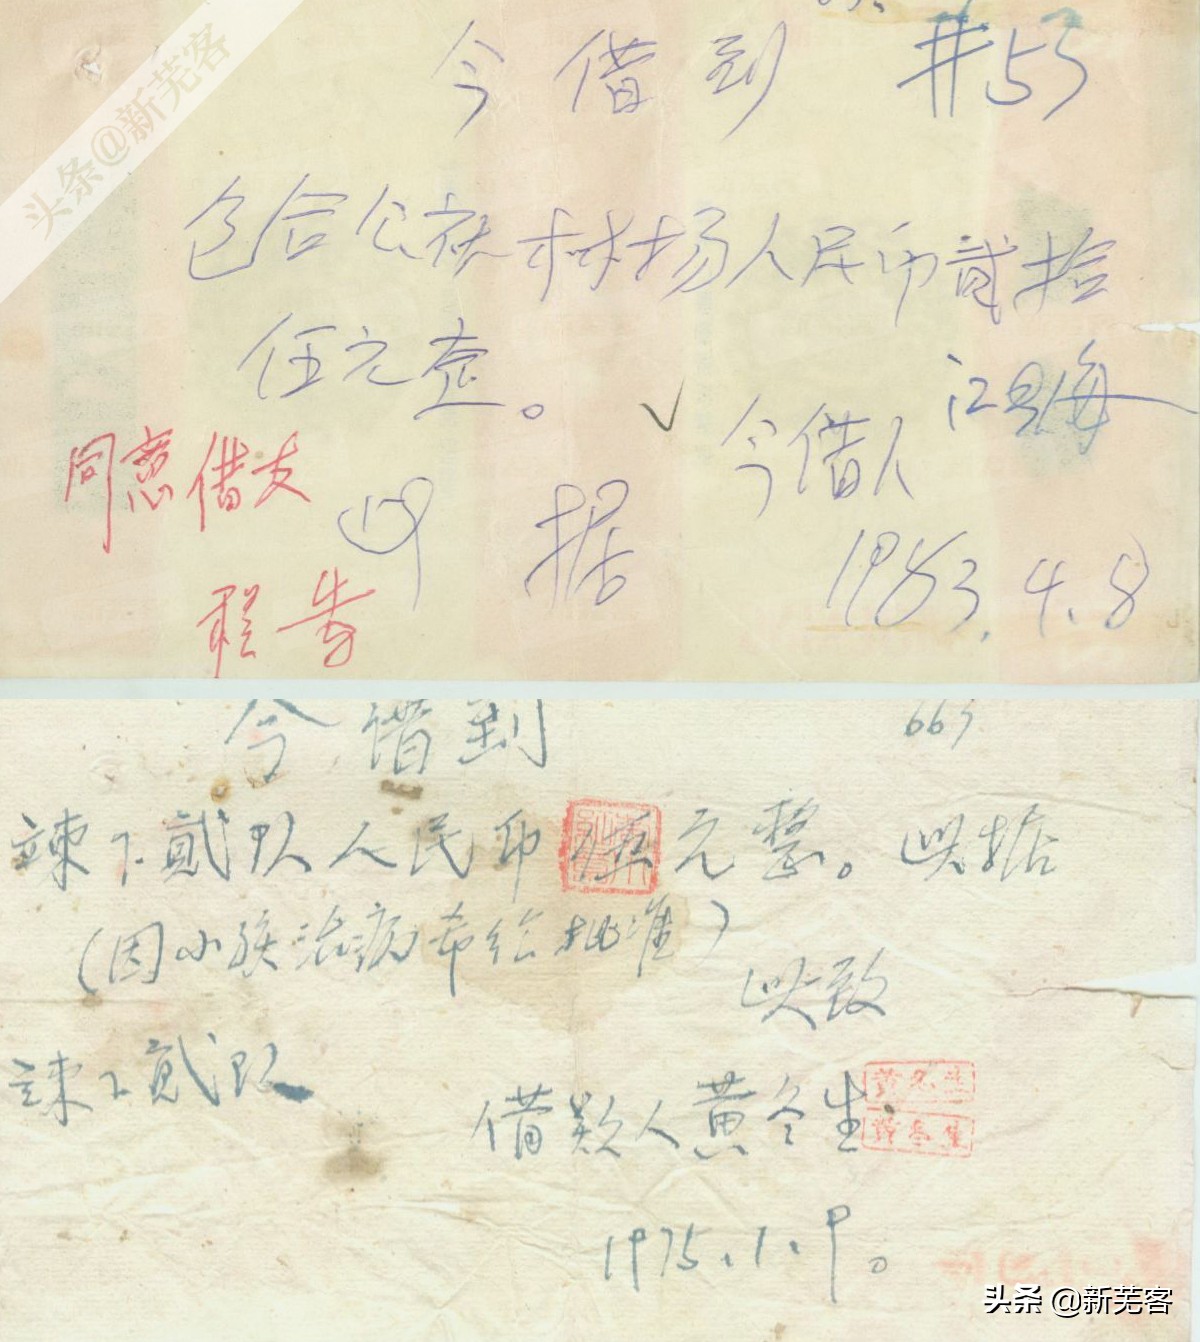 头条@新芜客
今借到 #55
包合公社林场人民币贰拾
伍元整。
江 海
今借人
同意借支
此据
1983.4.8
告
今借到 665
竦下贰队人民币 元整。此据
(因小孩治病希给批准)
此致
竦下贰队
借款人黄冬生
黄冬生
1975.1.9。
头条 @新芜客